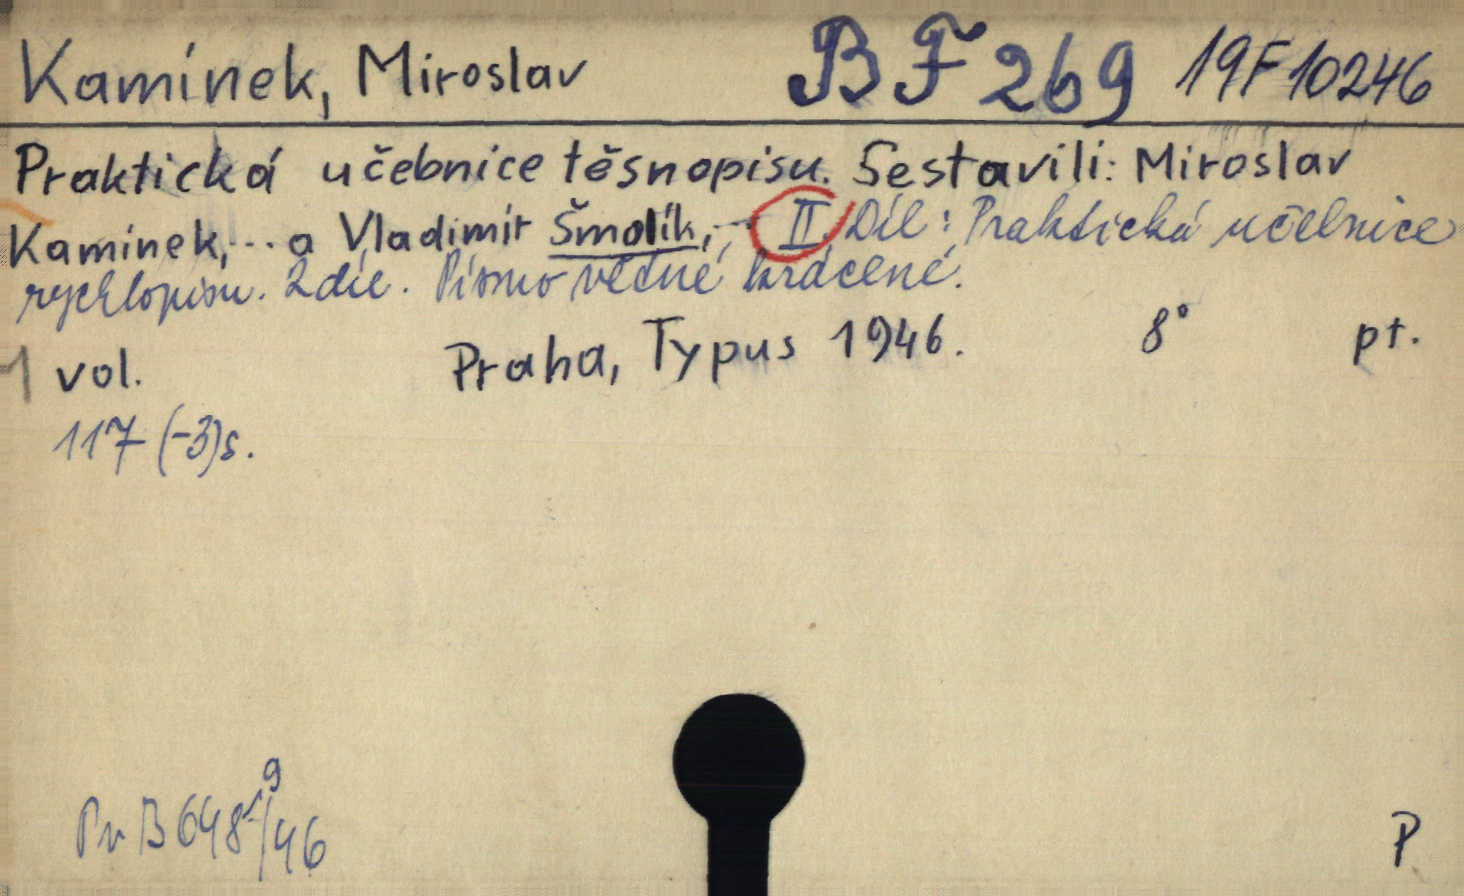 Kamínek, Miroslav BF 269 19F10246
Praktická učebnice těsnopisu. Sestavili: Miroslav
Kamínek,... a Vladimír Šmolík,-. II. Díl: Praktická učebnice
rychlopisu. 2 díl. Písmo vědné krácené.
1 vol. Praha, Typus 1946. 8° pt.
117 (-3)s.
9
Pv B 648 /46
P